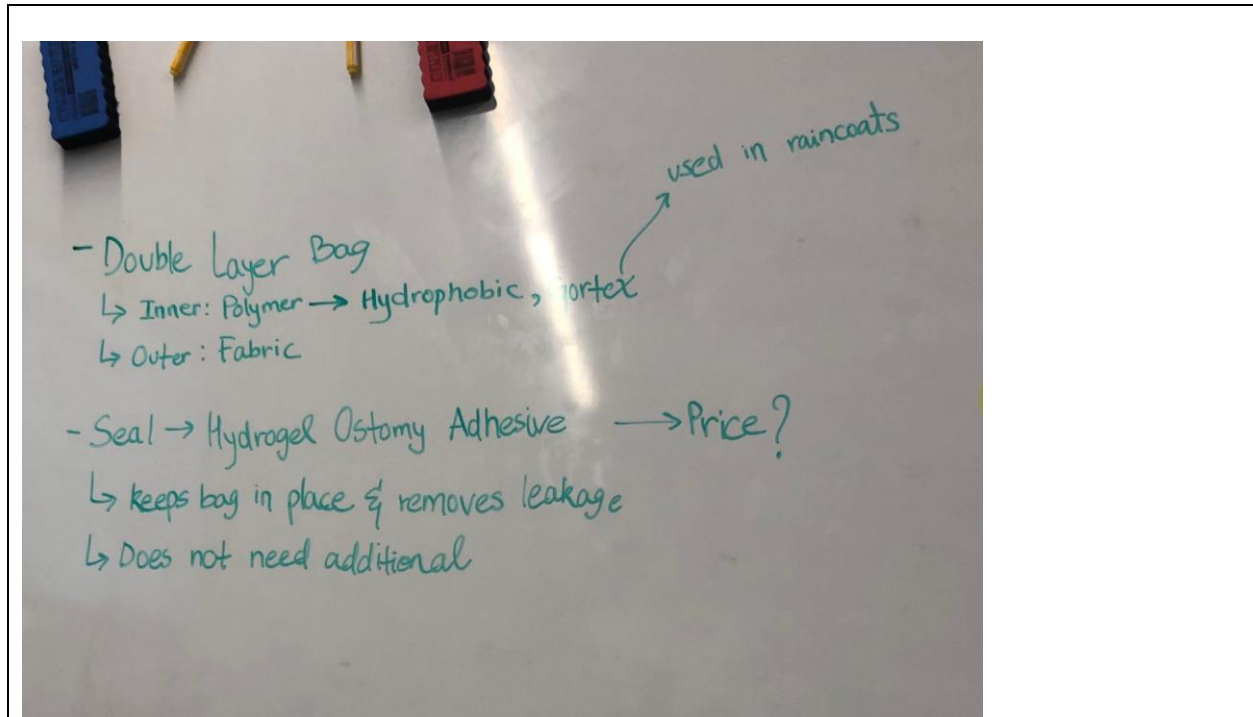 used in raincoats
- Double Layer Bag
↳ Inner: Polymer → Hydrophobic, Gortex
↳ Outer: Fabric
- Seal → Hydrogel Ostomy Adhesive → Price?
↳ keeps bag in place & removes leakage
↳ Does not need additional